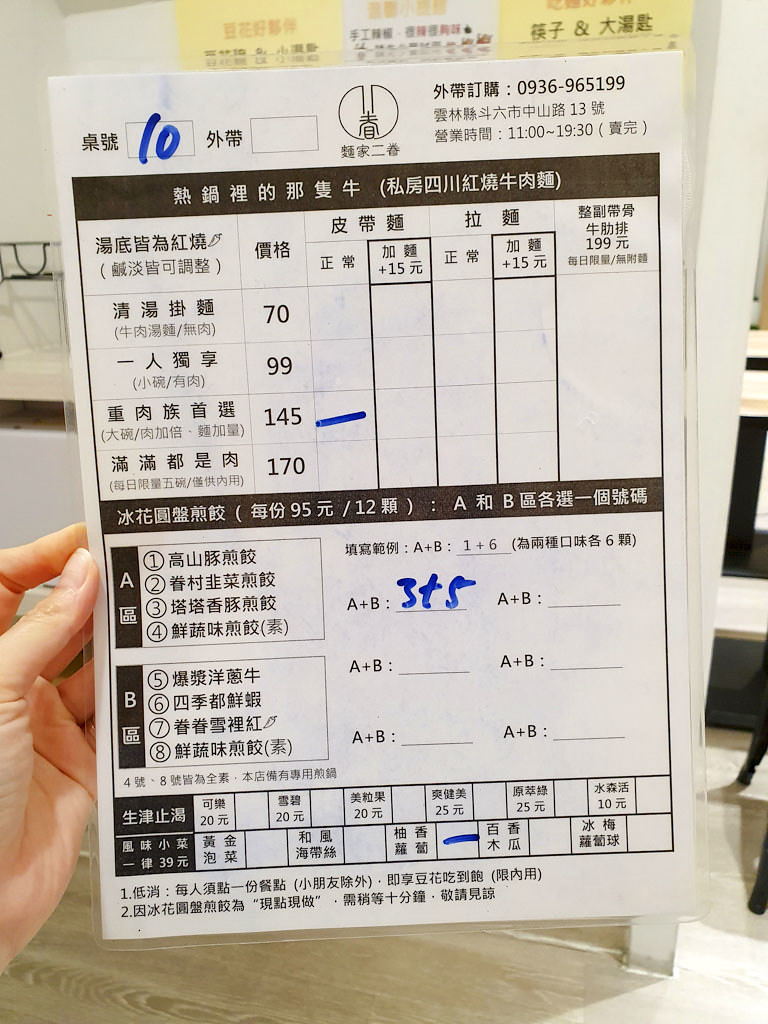 豆花好夥伴
手工辣椒，很辣很夠味
筷子 & 大湯匙
外帶訂購：0936-965199
雲林縣斗六市中山路 13 號
營業時間：11:00~19:30 ( 賣完 )
桌號 10 外帶
麵家二眷
熱鍋裡的那隻牛 (私房四川紅燒牛肉麵)
湯底皆為紅燒
( 鹹淡皆可調整 )
價格
皮帶麵
正常
加麵
+15 元
拉麵
正常
加麵
+15 元
整副帶骨
牛肋排
199 元
每日限量/無附麵
清湯掛麵 70
(牛肉湯麵/無肉)
一人獨享 99
(小碗/有肉)
重肉族首選 145
(大碗/肉加倍、麵加量)
滿滿都是肉 170
(每日限量五碗/僅供內用)
冰花圓盤煎餃 ( 每份 95 元 / 12 顆 ) ： A 和 B 區各選一個號碼
A 區
①高山豚煎餃
②眷村韭菜煎餃
③塔塔香豚煎餃
④鮮蔬味煎餃(素)
填寫範例：A+B： 1 + 6 (為兩種口味各 6 顆)
A+B：3+5 A+B：
A+B： A+B：
A+B： A+B：
B 區
⑤爆漿洋蔥牛
⑥四季都鮮蝦
⑦眷眷雪裡紅
⑧鮮蔬味煎餃(素)
4 號、8 號皆為全素，本店備有專用煎鍋
生津止渴
可樂
20 元
雪碧
20 元
美粒果
20 元
爽健美
25 元
原萃綠
25 元
水森活
10 元
風味小菜
一律 39 元
黃金
泡菜
和風
海帶絲
柚香
蘿蔔
百香
木瓜
冰梅
蘿蔔球
1.低消：每人須點一份餐點 (小朋友除外)，即享豆花吃到飽 (限內用)
2.因冰花圓盤煎餃為“現點現做”，需稍等十分鐘，敬請見諒